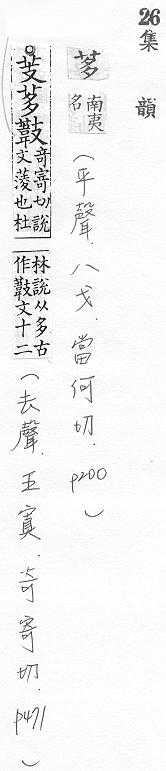 26集　韻
茤 南夷名 (平聲.八戈.當何切.p200)
芰茤 奇寄切說文蔆也杜林說从多古作文十二 (去聲.五寘.奇寄切.p471)